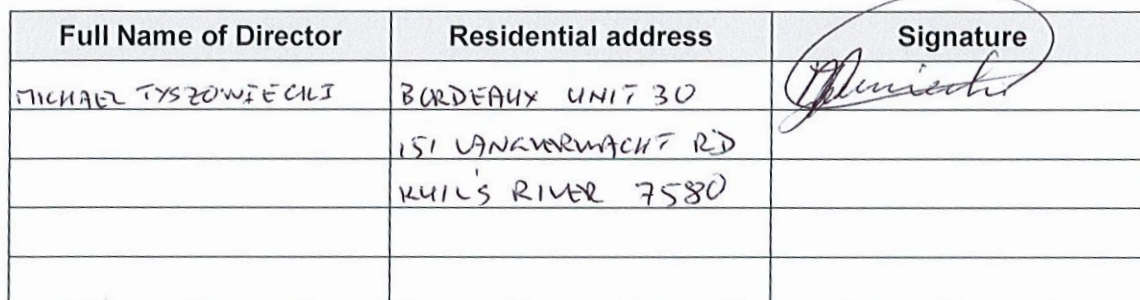 Full Name of Director Residential address Signature
MICHAEL TYSZOWIECKI BORDEAUX UNIT 30
151 LANGVERWACHT RD
KUIL'S RIVER 7580